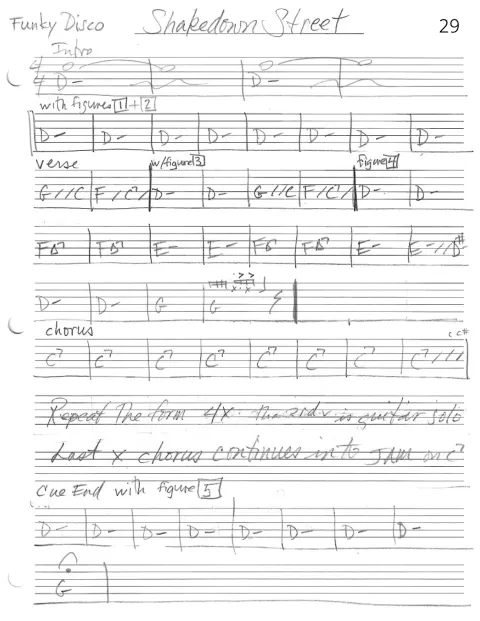 Funky Disco Shakedown Street 29
Intro
4/4 D- D-
with figures 1 + 2
D- D- D- D- D- D- D- D-
verse w/figure 3 figure 4
G//C F/C/ D- D- G//C F/C/ D- D-
F△7 F△7 E- E- F△7 F△7 E- E-//D#
D- D- G G
chorus c c#
C7 C7 C7 C7 C7 C7 C7 C7///
Repeat The form 4x. The 3rd x is guitar solo
Last x chorus continues into JAM on C7
Cue End with figure 5
D- D- D- D- D- D- D- D-
G